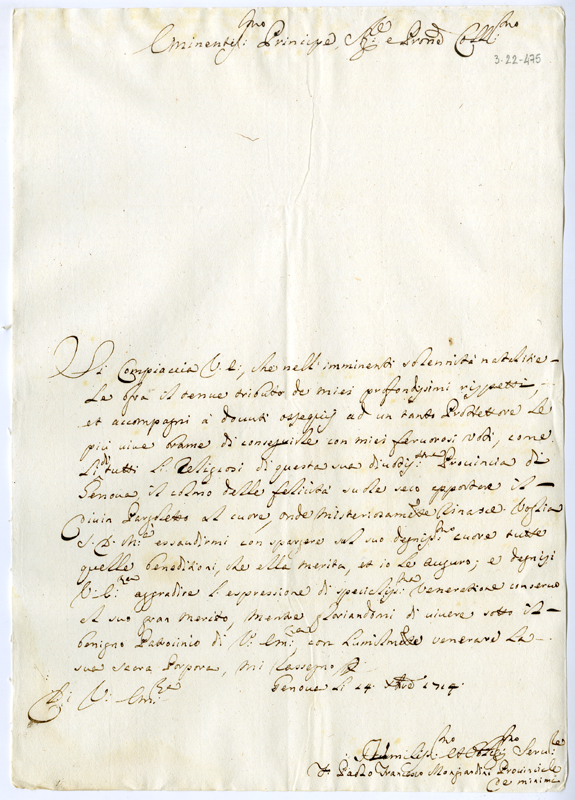 Eminentiss:mo Principe, Sig:re e Prone Coll:mo
3-22-475
Si Compiaccia V. E., che nell'imminenti solennità natalitie
Le offra il tenue tributo de miei profondissimi rispetti,
et accompagni à dovuti ossequij ad un tanto Protettore le
più vive brame di conseguirle con miei fervorosi voti, come
di tutti li Religiosi di questa sua divotiss:ma Provincia di
Genova, il colmo delle felicità suole seco apportare il
Divin Pargoletto al cuore, onde misteriosamte rinasce. Voglia
S. D. M.a essaudirmi con spargere sul suo degniss:mo cuore tutte
quelle beneditioni, che ella merita, et io le auguro; e degnisi
V: E:za aggradire l'espressione di specialiss:ma veneratione conservo
al suo gran merito, mentre gloriandomi di vivere sotto il
benigno Patrocinio di V: Em:za, con humilmte venerare la
sua sacra Porpora, mi rassegno
Di V: Em:za
Genova li 14 Xbre 1714
Humiliss:mo et Osseq:mo Serv:re
F. Paolo Francesco Mongiardini Provinciale
de minimi